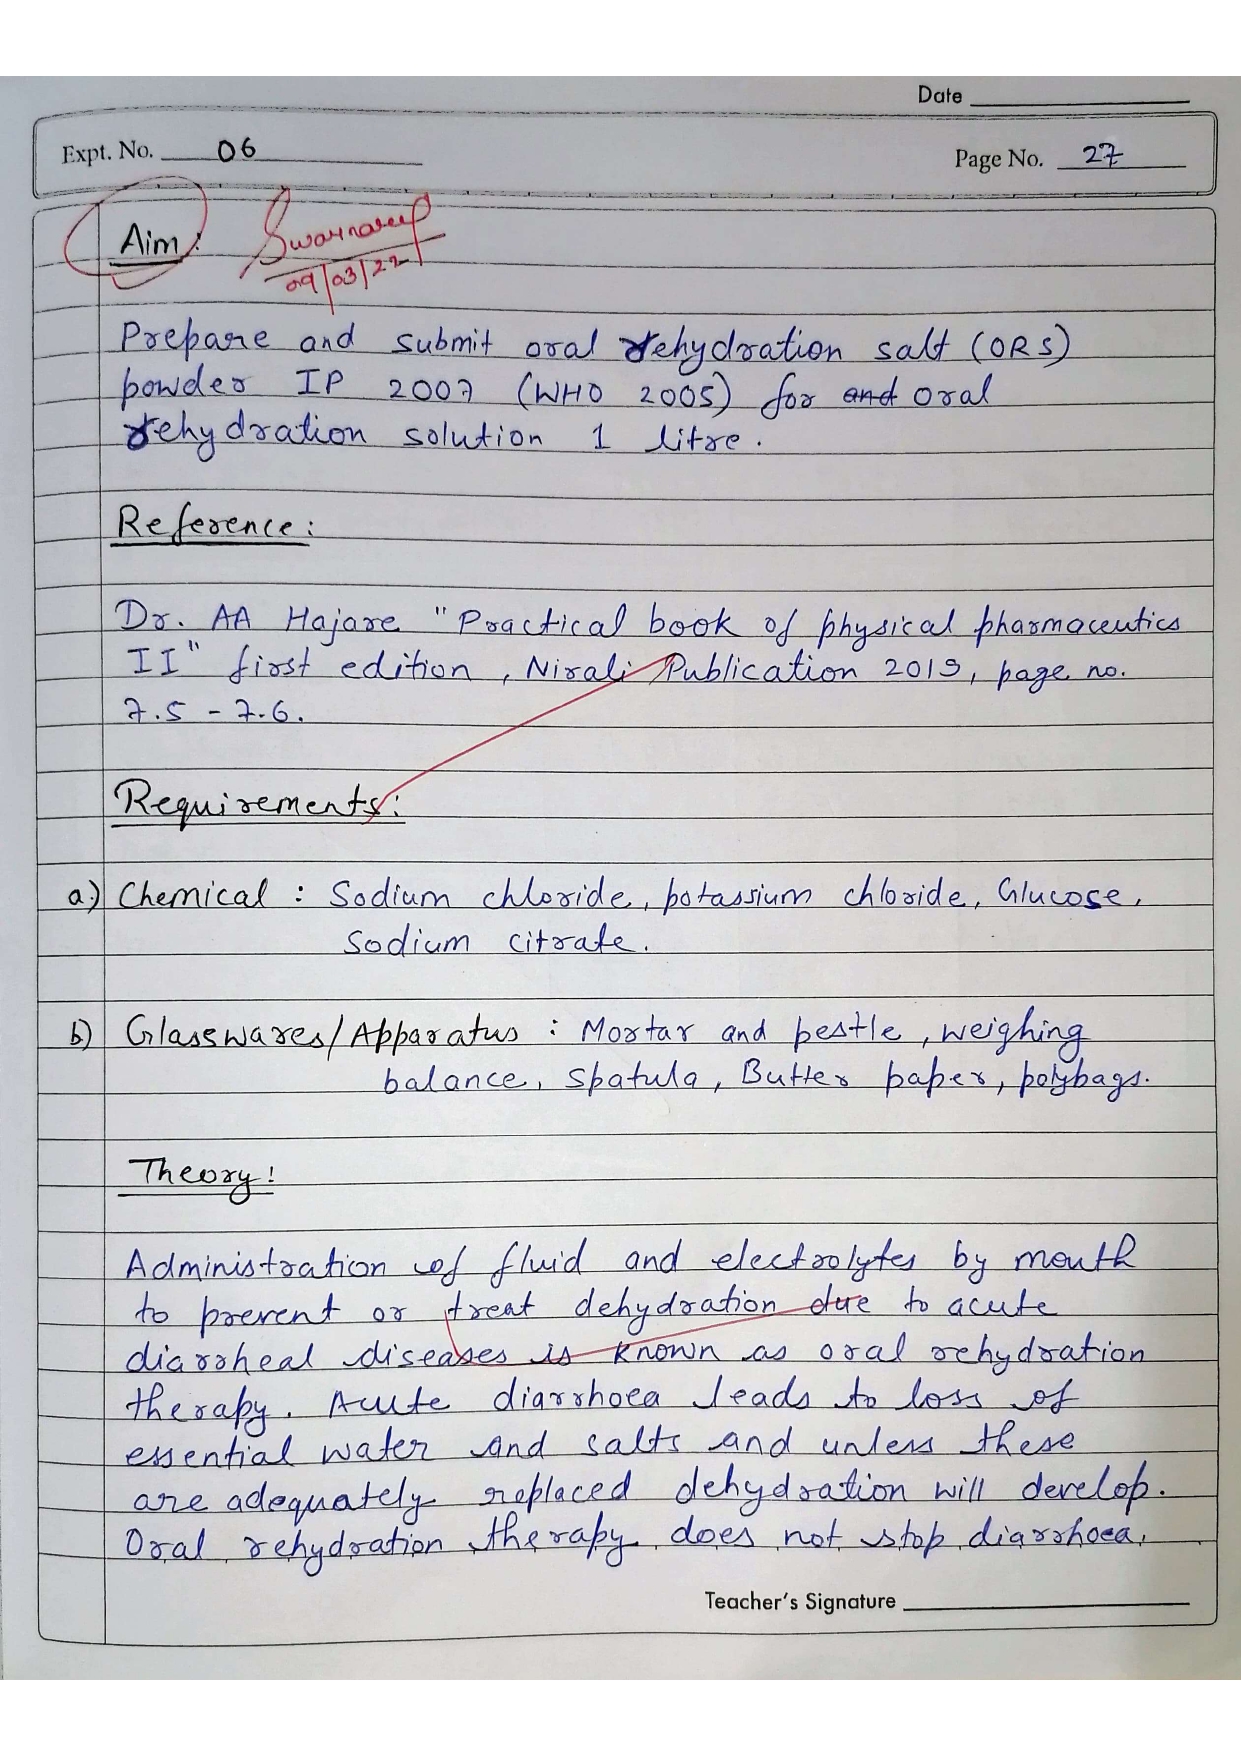 Date
Expt. No. 06
Page No. 27
Aim:
Swarnadeep
09/03/22
Prepare and submit oral rehydration salt (ORS)
powder IP 2007 (WHO 2005) for and oral
rehydration solution 1 litre.
Reference:
Dr. AA Hajare "Practical book of physical pharmaceutics
II" first edition, Nirali Publication 2019, page no.
7.5 - 7.6.
Requirements:
a.) Chemical : Sodium chloride, potassium chloride, Glucose,
Sodium citrate.
b) Glasswares/Apparatus : Mortar and pestle, weighing
balance, spatula, Butter paper, polybags.
Theory:
Administration of fluid and electrolytes by mouth
to prevent or treat dehydration due to acute
diarrheal diseases is known as oral rehydration
therapy. Acute diarrhoea leads to loss of
essential water and salts and unless these
are adequately replaced dehydration will develop.
Oral rehydration therapy does not stop diarrhoea,
Teacher's Signature